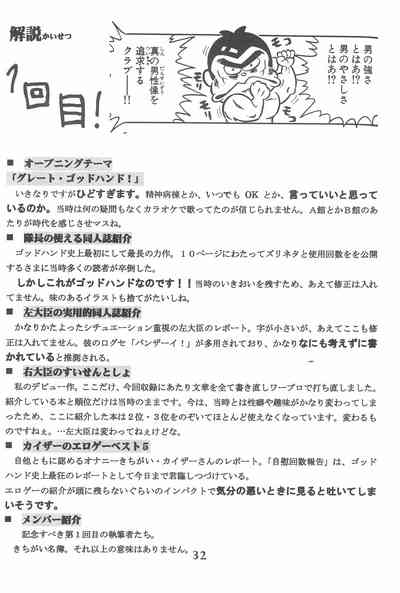 解説かいせつ
1回目!
男の強さ
とはあ!?
男のやさしさ
とはあ!?
真の男性像を
追求する
クラブ――!!
■ オープニングテーマ
「グレート・ゴッドハンド!」
いきなりですがひどすぎます。精神病棟とか、いつでもOKとか、言っていいと思って
いるのか。当時は何の疑問もなくカラオケで歌ってたのが信じられません。A館とかB館のあ
たりが時代を感じさせマスね。
■ 隊長の使える同人誌紹介
ゴッドハンド史上最初にして最長の力作。10ページにわたってズリネタと使用回数をを公開
するさまに当時多くの読者が卒倒した。
しかしこれがゴッドハンドなのです!!当時のいきおいを残すため、あえて修正は入れ
てません。味のあるイラストも捨てがたいしね。
■ 左大臣の実用的同人誌紹介
かなりかたよったシチュエーション重視の左大臣のレポート。字が小さいが、あえてここも修
正は入れてません。彼のログセ「バンザーイ!」が多用されており、かなりなにも考えずに書
かれていると推測される。
■ 右大臣のすいせんとしょ
私のデビュー作。ここだけ、今回収録にあたり文章を全て書き直しワープロで打ち直しました。
紹介している本と順位だけは当時のままです。今は、当時とは性癖や趣味がかなり変わってしま
ったため、ここに紹介した本は2位・3位をのぞいてほとんど使えなくなっています。変わるも
のですねぇ。…左大臣は変わってねぇけどな。
■ カイザーのエロゲーベスト5
自他ともに認めるオナニーきちがい・カイザーさんのレポート。「自慰回数報告」は、ゴッド
ハンド史上最狂のレポートとして今日まで君臨しつづけている。
エロゲーの紹介が頭に残らないぐらいのインパクトで気分の悪いときに見ると吐いてしま
いそうです。
■ メンバー紹介
記念すべき第1回目の執筆者たち。
きちがい名簿。それ以上の意味はありません。
32